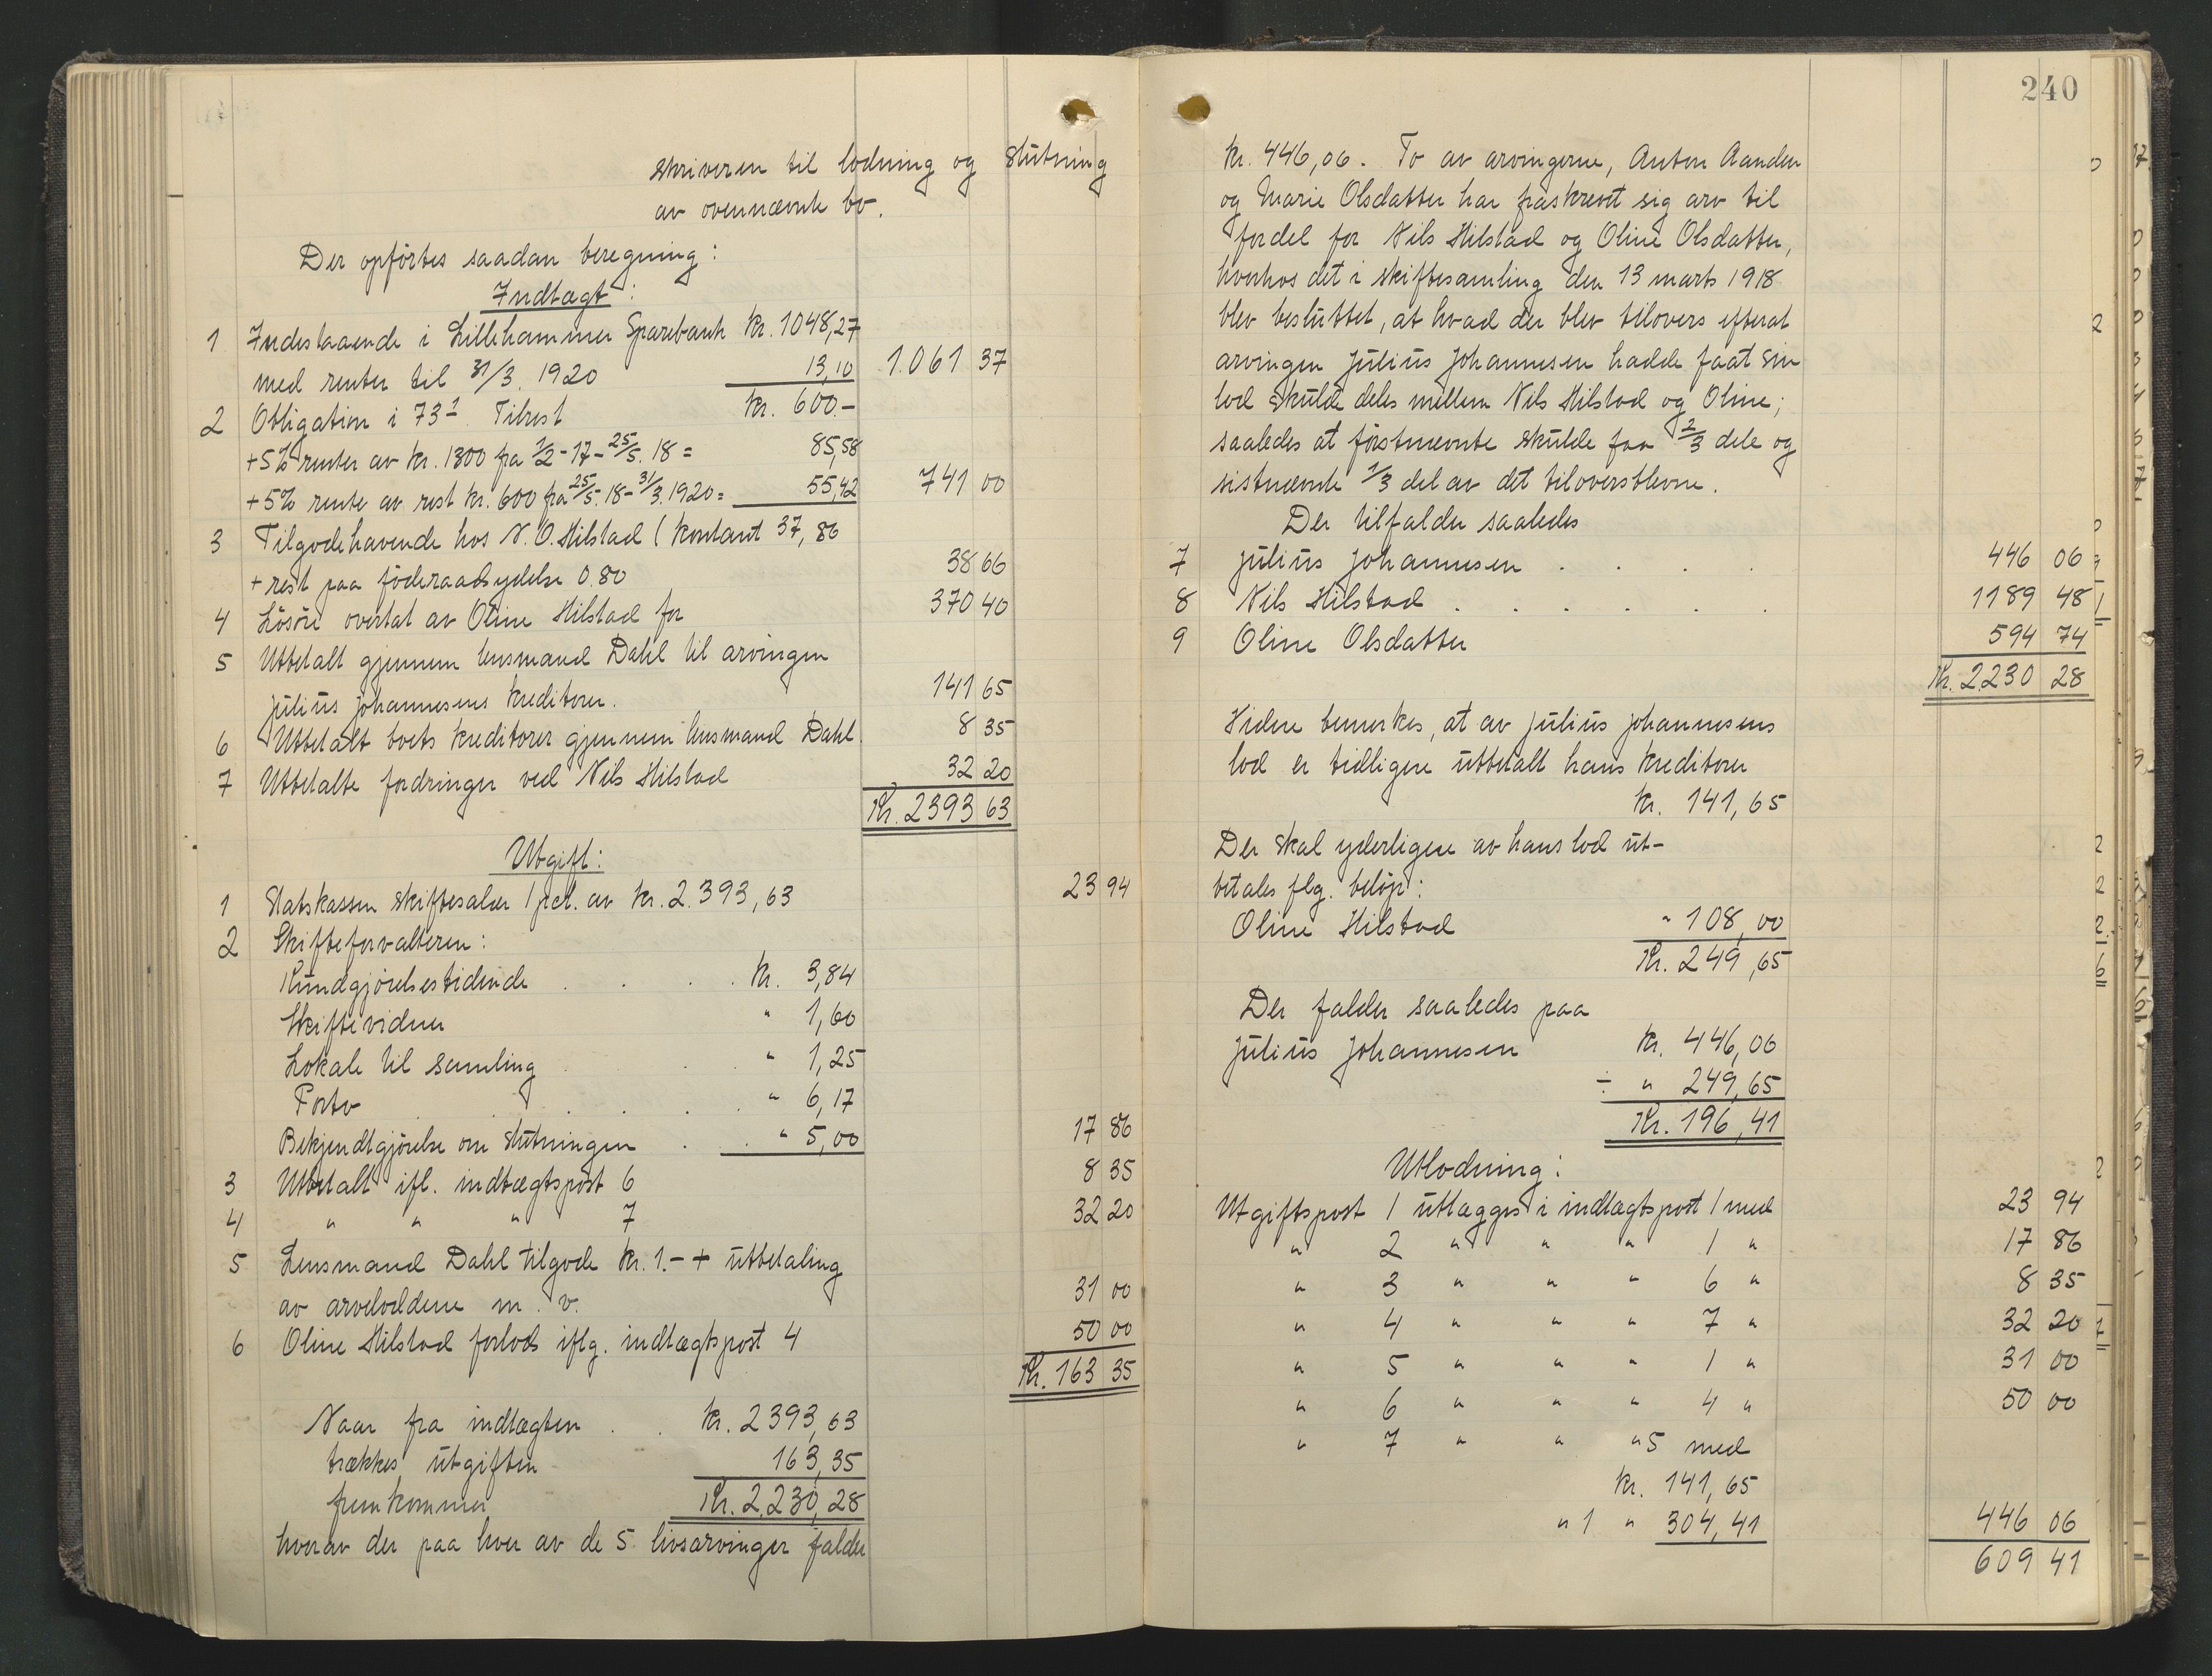 skriveren til lodning og slutning
av ovennævnte bo.
Der opførtes saadan beregning:
Indtægt:
1 Indestaaende i Lillehammer Sparebank kr. 1048,27
med renter til 31/3. 1920 13,10 1.061 37
2 Obligation i 73 1 Tilrest kr. 600.-
+5% renter av kr. 1300 fra 1/2-17-25/5. 18 = 85,58
+5% rente av rest kr. 600 fra 25/5.18-31/3.1920= 55,42 741 00
3 Tilgodehavende hos N. O. Hilstad (kontant 37,86
+ rest paa føderaadsydelse 0.80 38 66
4 Løsøre overtat av Oline Hilstad for 370 40
5 Utbetalt gjennem lensmand Dahl til arvingen
Julius Johannesens kreditorer. 141 65
6 Utbetalt boets kreditorer gjennem lensmand Dahl. 8 35
7 Utbetalte fordringer ved Nils Hilstad 32 20
Kr. 2393 63
Utgift:
1 Statskassen skiftesalær 1 pct. av kr. 2.393,63 23 94
2 Skifteforvalteren:
Kundgjørelsestidende . . . . kr. 3,84
Skiftevidner " 1,60
Lokale til samling . . . " 1,25
Porto . . . . . " 6,17
Bekjendtgjørelse om slutningen . . " 5,00 17 86
3 Utbetalt ifl. indtægtspost 6 8 35
4 " " " 7 32 20
5 Lensmand Dahl tilgode kr. 1.- + utbetaling
av arvelodderne m. v. 31 00
6 Oline Hilstad forlods iflg. indtægtspost 4 50 00
Kr. 163 35
Naar fra indtægten . . kr. 2393,63
trækkes utgiften 163,35
fremkommer Kr. 2.230,28
hvorav der paa hver av de 5 livsarvinger falder
240
kr. 446,06. To av arvingerne, Anton Aanden
og Marie Olsdatter har fraskrevet sig arv til
fordel for Nils Hilstad og Oline Olsdatter,
hvorhos det i skiftesamling den 13 marts 1918
blev besluttet, at hvad der blev tilovers efterat
arvingen Julius Johannesen hadde faat sin
lod skulde deles mellem Nils Hilstad og Oline;
saaledes at førstnævnte skulde faa 2/3 dele og
sistnævnte 1/3 del av det tiloversblevne.
Der tilfalder saaledes
7 Julius Johannesen . . . . 446 06
8 Nils Hilstad . . . . . . 1189 48
9 Oline Olsdatter 594 74
Kr. 2230 28
Videre bemerkes, at av Julius Johannesens
lod er tidligere utbetalt hans kreditorer
kr. 141,65
Der skal yderligere av hans lod ut-
betales flg. beløp:
Oline Hilstad " 108,00
Kr. 249,65
Der falder saaledes paa
Julius Johannesen kr. 446,06
÷ " 249,65
Kr. 196,41
Utlodning:
Utgiftspost 1 utlægges i indtægtspost 1 med 23 94
" 2 " " " 1 " 17 86
" 3 " " " 6 " 8 35
" 4 " " " 7 " 32 20
" 5 " " " 1 " 31 00
" 6 " " " 4 " 50 00
" 7 " " " 5 med
kr. 141,65
" 1 " 304,41 446 06
609 41